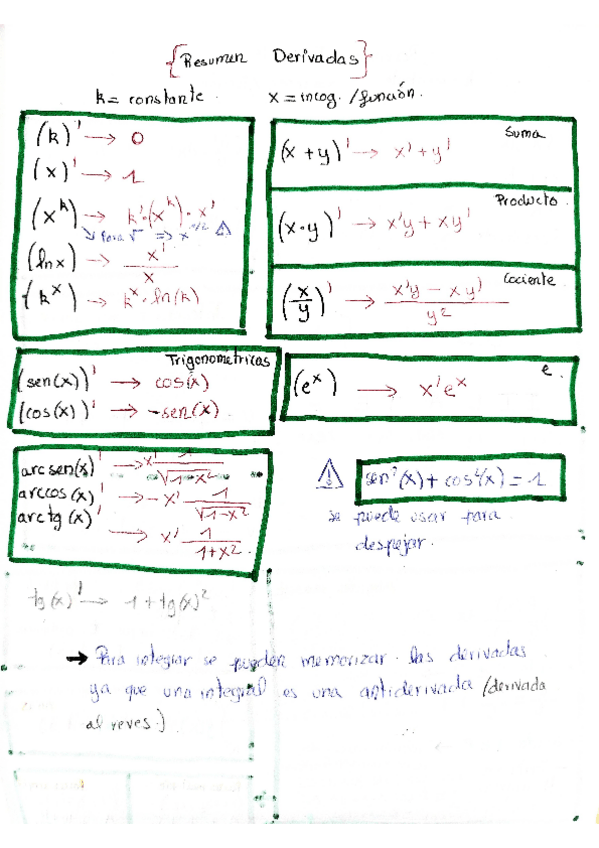 {Resumen Derivadas}
k = constante. x = incog. / función.
(k)' → 0
(x)' → 1
(x^k) → k'·(x^k)·x'
↘ Para √ ⇒ x^n/2 ⚠
(ln x) → x'/x
(k^x) → k^x · ln(k)
Suma
(x + y)' → x' + y'
Producto
(x·y)' → x'y + xy'
Cociente
(x/y)' → x'y − xy'/y²
Trigonometricas
(sen(x))' → cos(x)
(cos(x))' → −sen(x)
e
(e^x) → x'e^x
arcsen(x)' → x' 1/√1−x²
arccos(x)' → −x' 1/√1−x²
arctg(x)' → x' 1/1+x²
⚠ sen²(x) + cos²(x) = 1
se puede usar para
despejar.
tg(x)' → 1 + tg(x)²
→ Para integrar se pueden memorizar las derivadas
ya que una integral es una antiderivada (derivada
al reves.)